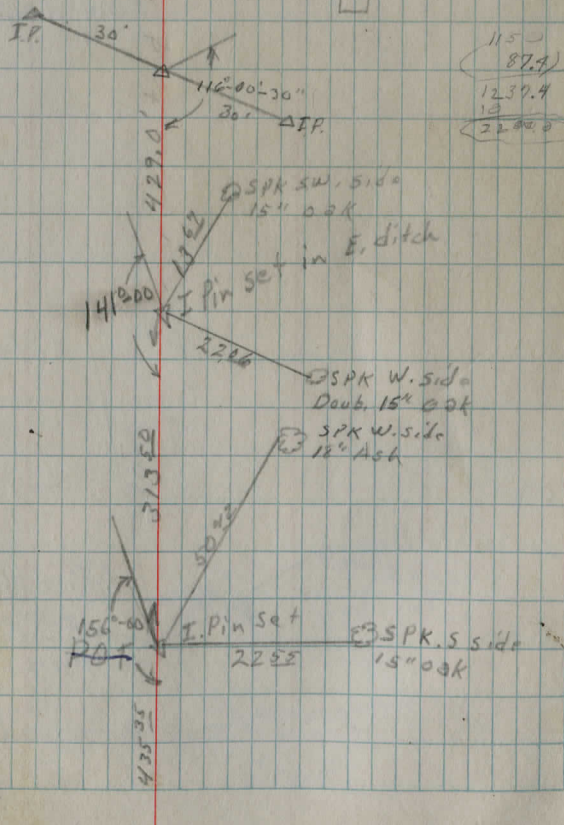 I.P.
30'
116°-00'-30"
30'
I.P.
115
87.4
1237.4
10
429.0'
SPK SW. Side
15" oak
I Pin set in E. ditch
141°-00
22.06
SPK W. Side
Doub. 15" oak
SPK W. side
18" Ash
313 50
156°-00
I. Pin set
POT
22 55
SPK. S side
15" oak
435 35